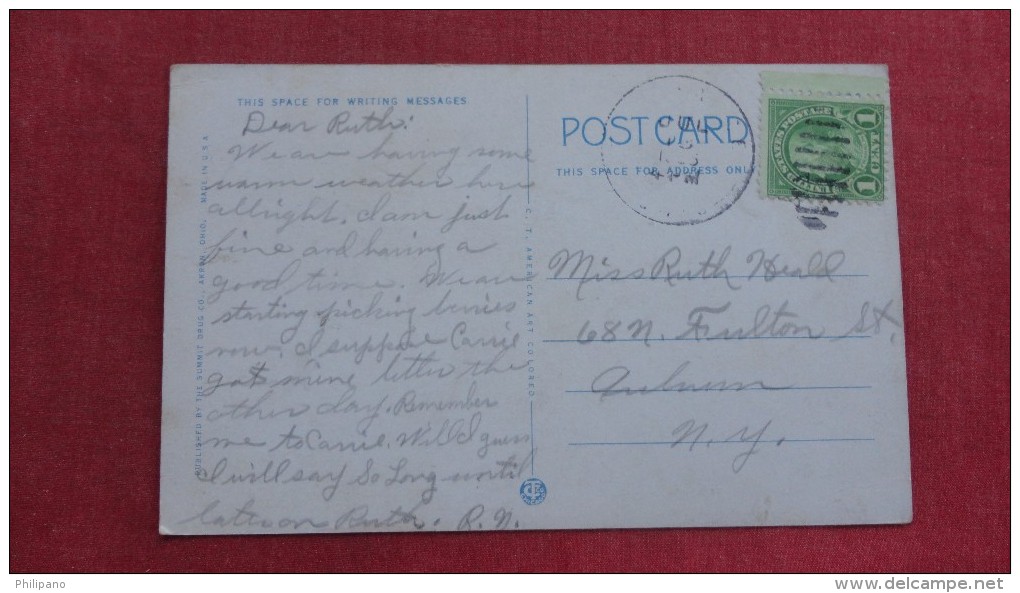 THIS SPACE FOR WRITING MESSAGES
Dear Ruth:
We are having some
warm weather here
allright. I am just
fine and having a
good time. We are
starting picking berries
now. I suppose Carrie
got mine letter the
other day. Remember
me to Carrie. Well I guess
I will say So Long until
later on Ruth. R.N.
PUBLISHED BY THE SUMMIT DRUG CO., AKRON, OHIO. MADE IN U.S.A.
C. T. AMERICAN ART COLORED
POST CARD
THIS SPACE FOR ADDRESS ONLY
Miss Ruth Heald
68 N. Fulton St.
Auburn
N.Y.
1 CENT 1
Philipano
http://www.delcampe.net